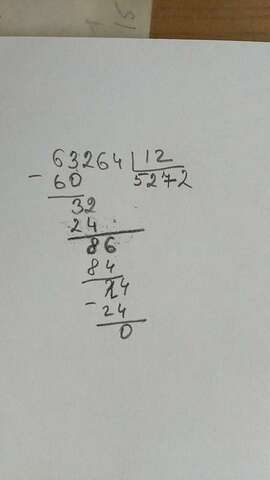 63264 12
- 60 5272
32
24
86
84
24
- 24
0
15